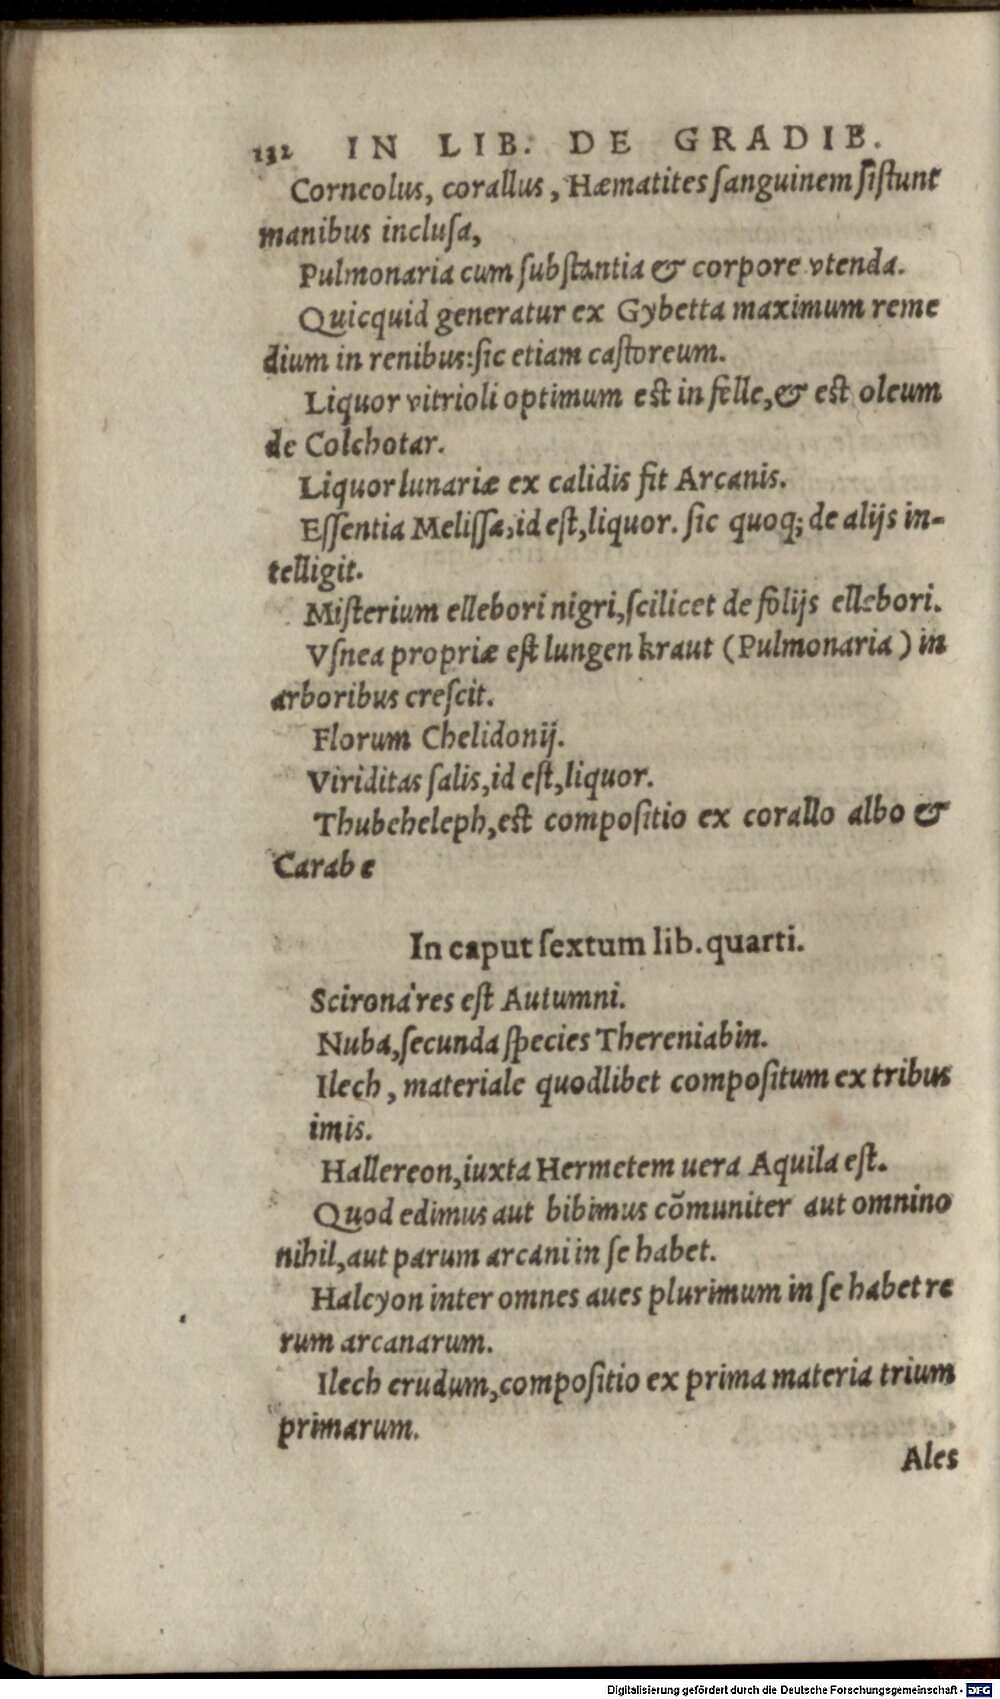 132 IN LIB. DE GRADIB.
Corneolus, corallus, Hæmatites ſanguinem ſiſtunt
manibus incluſa,
Pulmonaria cum ſubſtantia & corpore vtenda.
Quicquid generatur ex Gybetta maximum reme
dium in renibus:ſic etiam caſtoreum.
Liquor vitrioli optimum eſt in felle,& eſt oleum
de Colchotar.
Liquor lunariæ ex calidis fit Arcanis.
Eſſentia Meliſſæ,id eſt,liquor. ſic quoq; de alijs in-
telligit.
Miſterium ellebori nigri,ſcilicet de folijs ellebori.
Vſnea propriæ eſt lungen kraut (Pulmonaria) in
arboribus creſcit.
Florum Chelidonij.
Viriditas ſalis,id eſt,liquor.
Thubcheleph,eſt compoſitio ex corallo albo &
Carabe
In caput ſextum lib.quarti.
Scironares eſt Autumni.
Nuba,ſecunda ſpecies Thereniabin.
Ilech, materiale quodlibet compoſitum ex tribus
imis.
Hallereon,iuxta Hermetem uera Aquila eſt.
Quod edimus aut bibimus cõmuniter aut omnino
nihil,aut parum arcani in ſe habet.
Halcyon inter omnes aues plurimum in ſe habet re
rum arcanarum.
Ilech crudum,compoſitio ex prima materia trium
primarum.
Ales
Digitalisierung gefördert durch die Deutsche Forschungsgemeinschaft - DFG